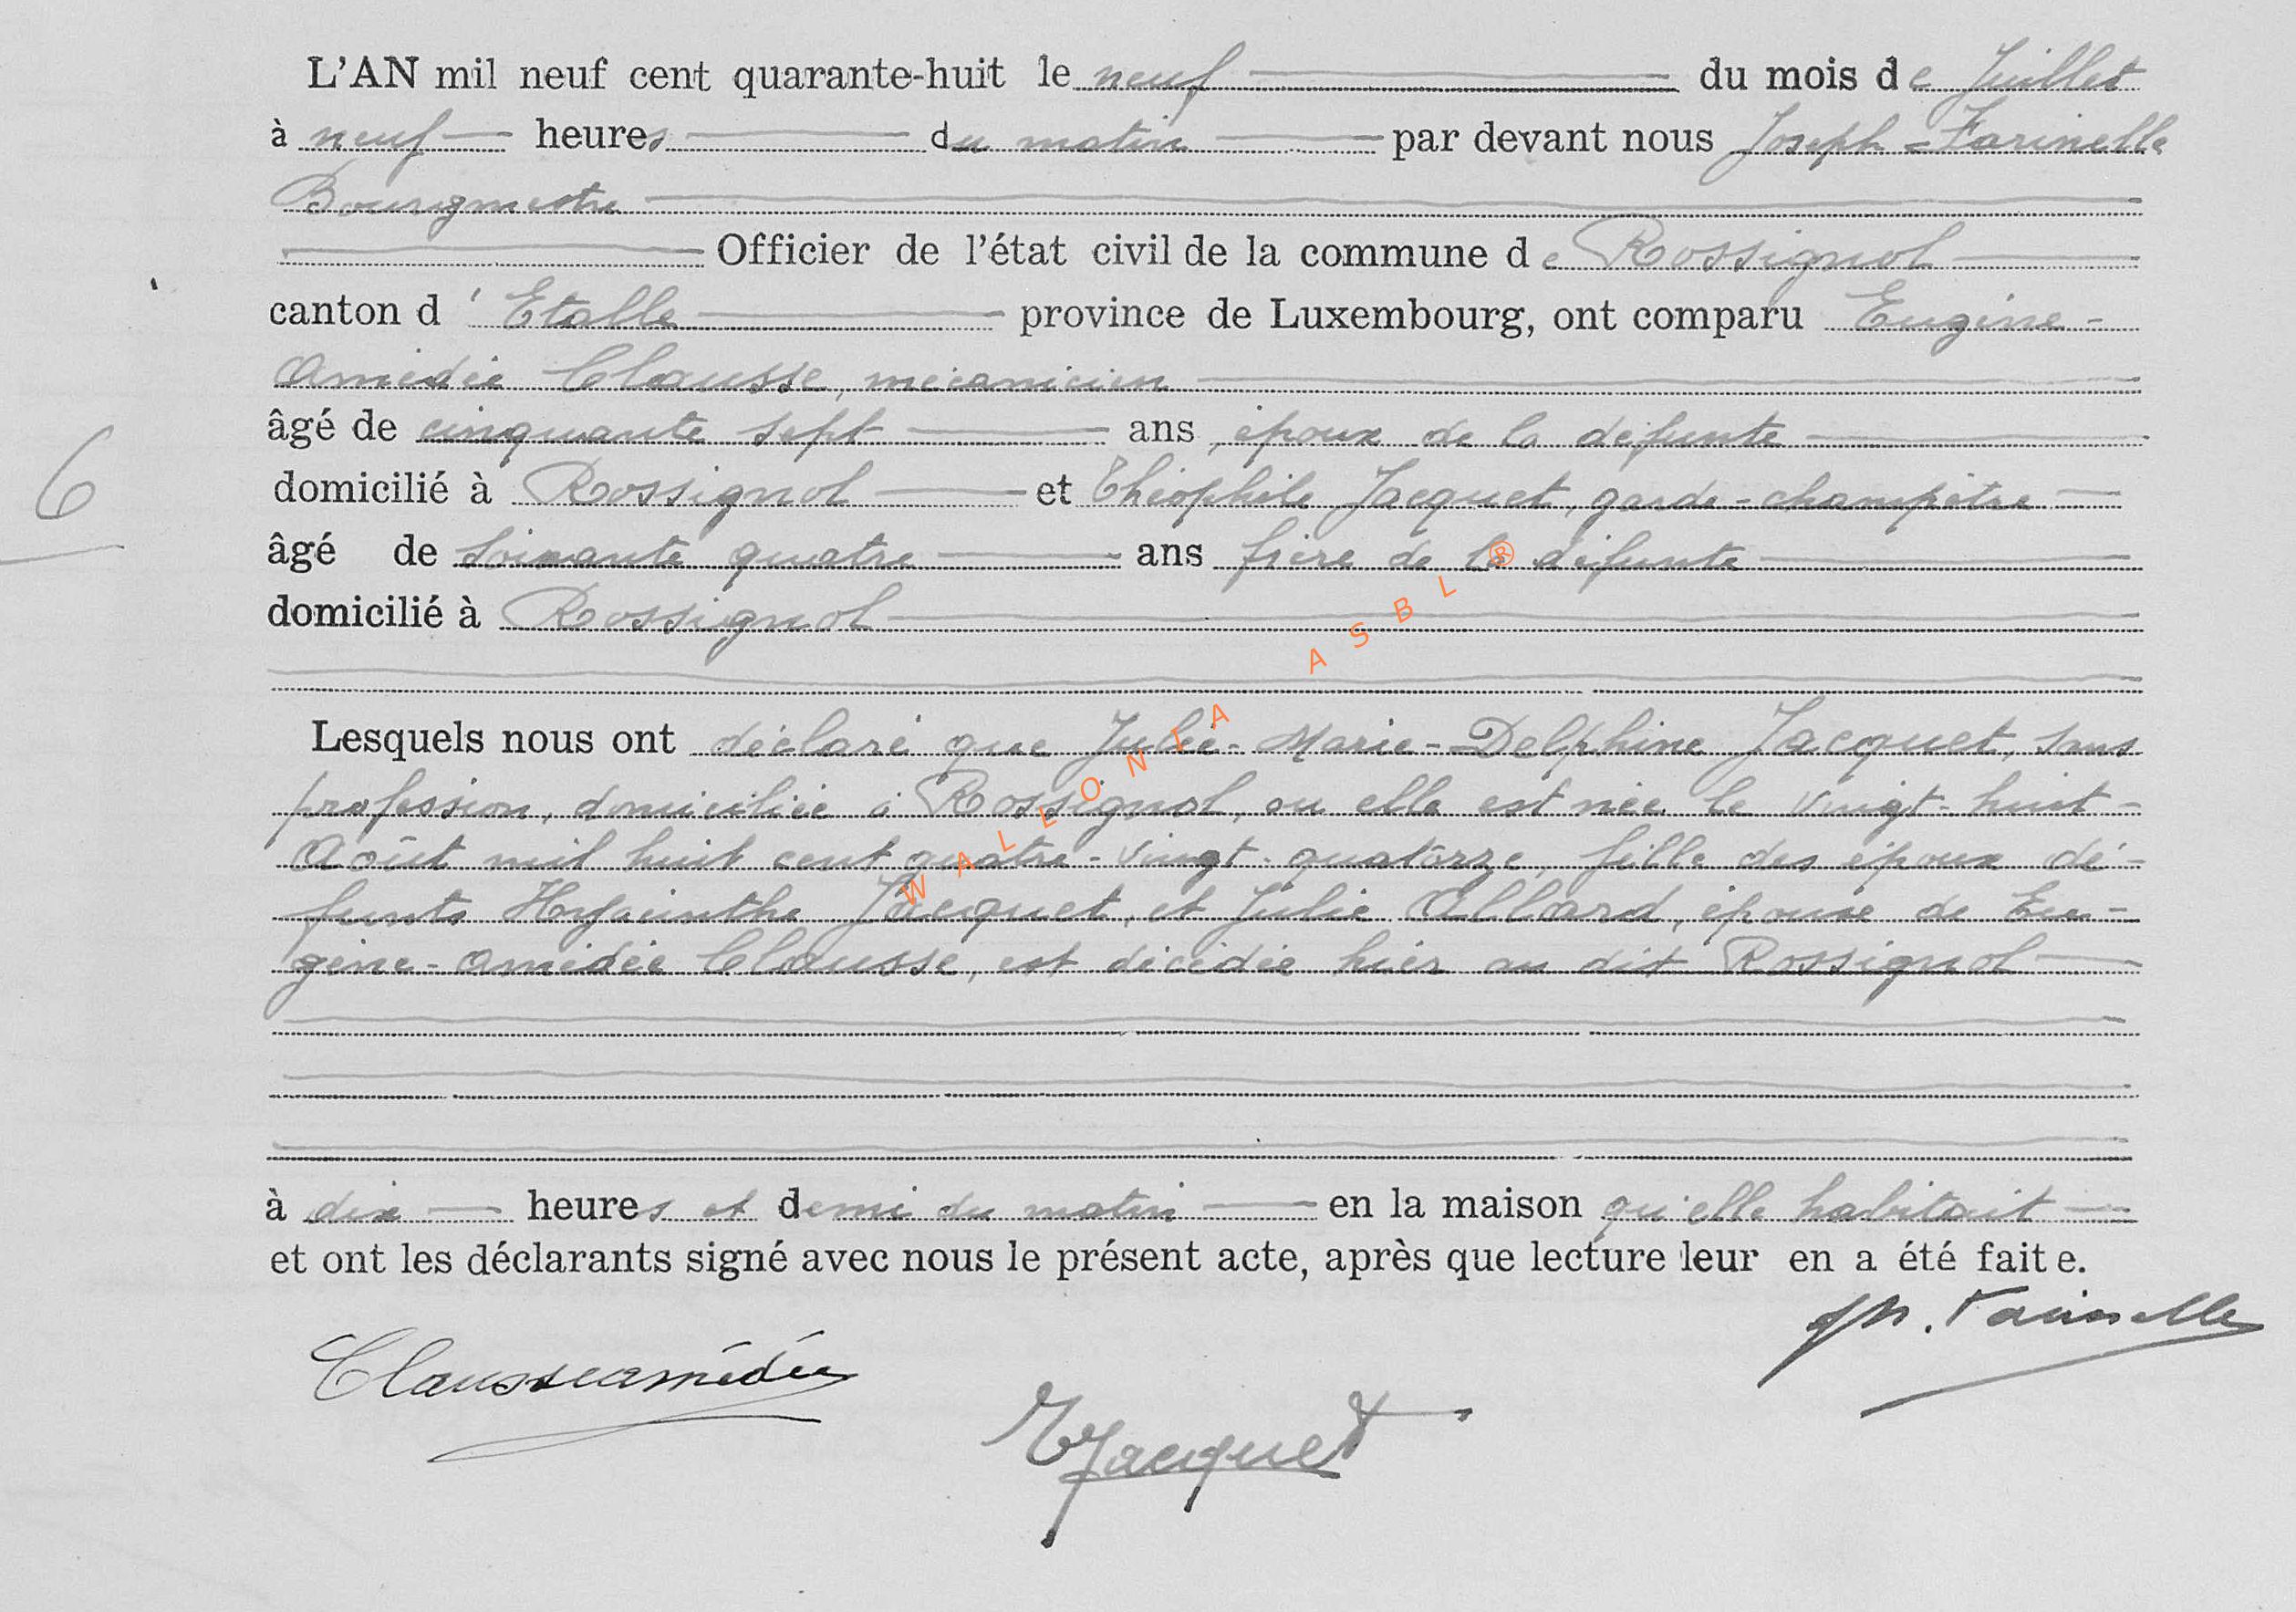 L'AN mil neuf cent quarante-huit le neuf du mois de Juillet
à neuf heures du matin par devant nous Joseph Farinelle
Bourgmestre
Officier de l'état civil de la commune de Rossignol
canton d' Etalle province de Luxembourg, ont comparu Eugène-
Amédée Clausse, mécanicien
âgé de cinquante sept ans, époux de la défunte
domicilié à Rossignol et Théophile Jacquet, garde-champêtre
6
âgé de soixante quatre ans frère de la défunte
domicilié à Rossignol
Lesquels nous ont déclaré que Julie-Marie-Delphine Jacquet, sans
profession, domiciliée à Rossignol, ou elle est née le vingt-huit
Août mil huit cent quatre-vingt-quatorze, fille des époux dé-
funts Hyacinthe Jacquet, et Julie Allard, épouse de Eu-
gène-Amédée Clausse, est décédée hier au dit Rossignol
à dix heures et demi du matin en la maison qu'elle habitait
et ont les déclarants signé avec nous le présent acte, après que lecture leur en a été faite.
Jh. Farinelle
Clausse amédée
T Jacquet
WALLONIA ASBL ®